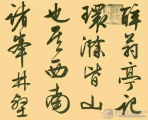 醉翁亭记
環滁皆山
也其西南
诸峯林壑